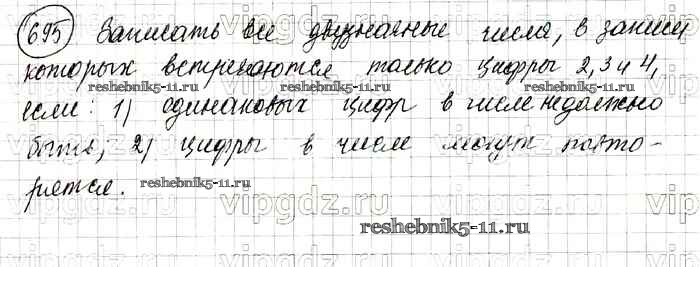 695 Записать все двузначные числа, в записи
которых встречаются только цифры 2, 3 и 4,
reshebnik5-11.ru reshebnik5-11.ru
если: 1) одинаковых цифр в числе не должно
быть; 2) цифры в числе могут повто-
vipgdz.ru vipgdz.ru vipgdz.ru
ряться.
reshebnik5-11.ru
vipgdz.ru vipgdz.ru vipgdz.ru
reshebnik5-11.ru
vipgdz.ru vipgdz.ru vipgdz.ru